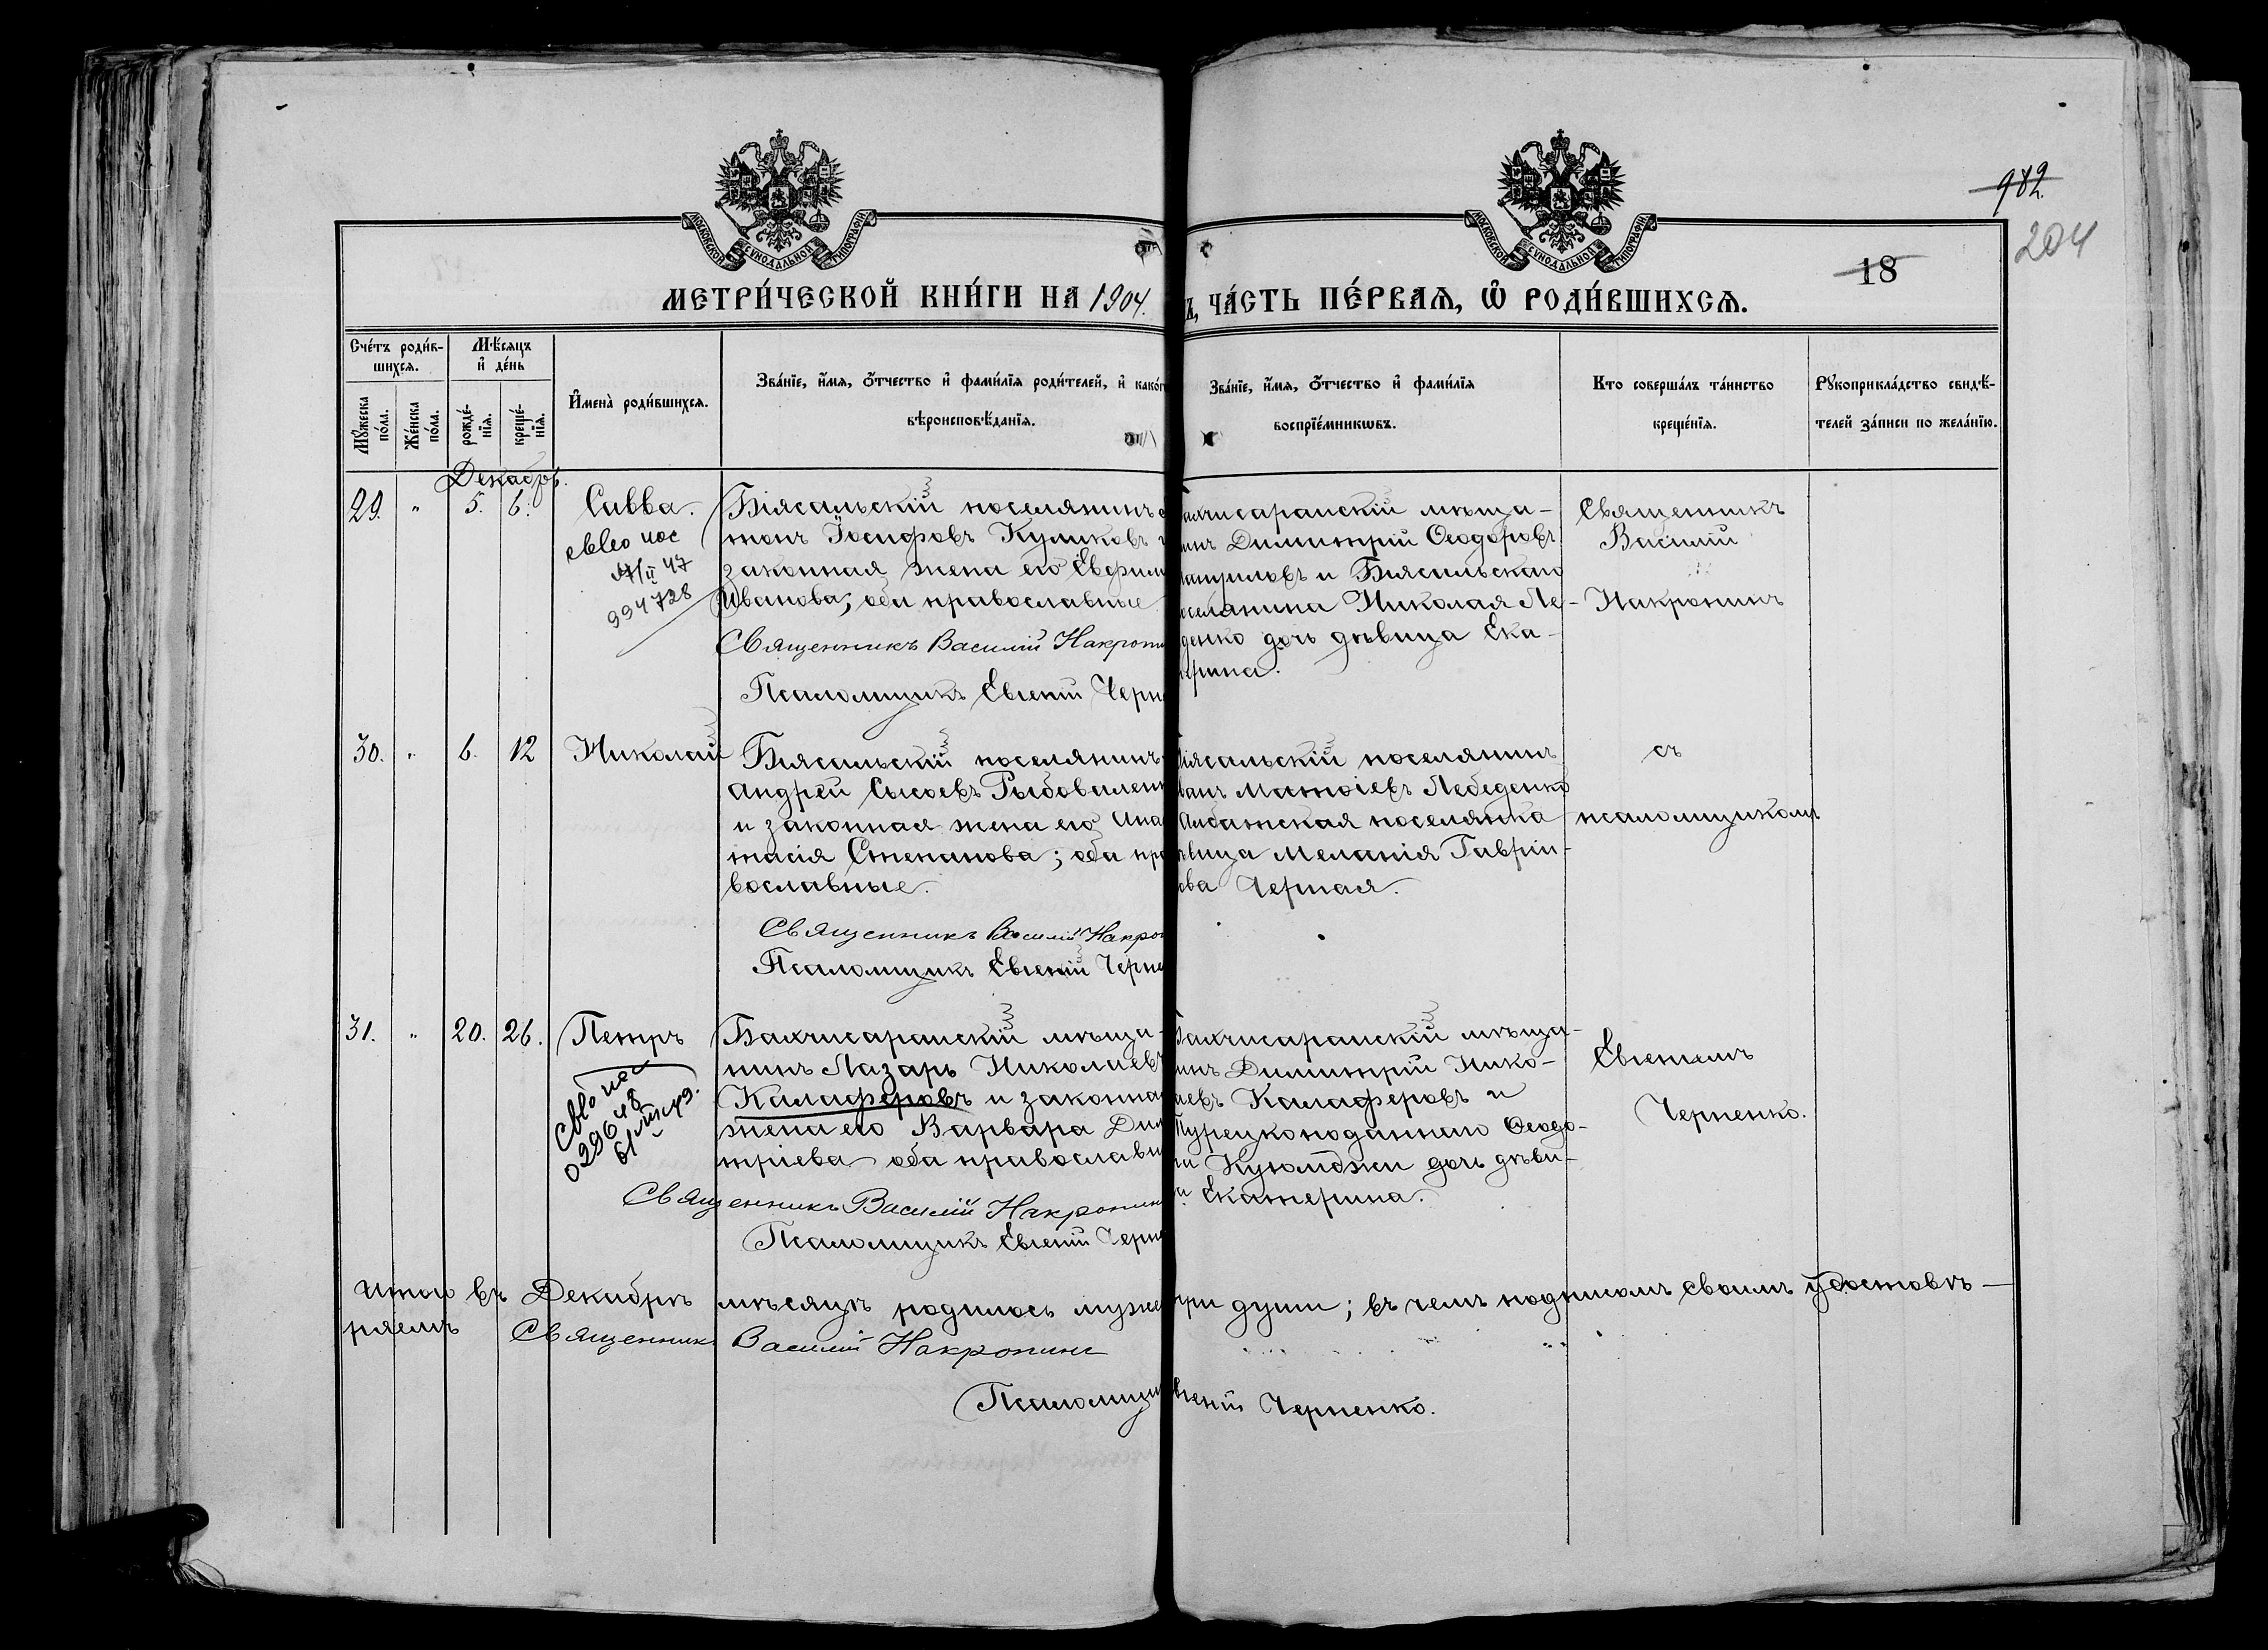 МОСКОВСКОЙ СѴНОДАЛЬНОЙ ТИПОГРАФІИ
МОСКОВСКОЙ СѴНОДАЛЬНОЙ ТИПОГРАФІИ
982
204
18
МЕТРИ́ЧЕСКОЙ КНИ́ГИ НА 1904.
ЧА́СТЬ ПЕ́РВАѦ, Ѡ҆ РОДИ́ВШИХСѦ.
Сче́тъ роди́в-
шихсѧ.
Мꙋ́жеска по́ла.
Же́нска по́ла.
Мѣ́сяцъ
и҆ де́нь
рожде́-
нїѧ.
креще́-
нїѧ.
И҆мена̀ роди́вшихсѧ.
Зва́нїе, и҆́мѧ, ѻ҆́тчество и҆ фами́лїѧ роди́телей, и҆ како́г
вѣроисповѣ́данїѧ.
Зва́нїе, и҆́мѧ, ѻ҆́тчество и҆ фами́лїѧ
воспрїе́мникѡвъ.
Кто соверша́лъ та́инство
креще́нїѧ.
Рꙋкоприкла́дство свидѣ́-
телей за́писи по жела́нїю.
Декабрь.
29. " 5. 6. Савва.
994728
Біясальскій поселянинъ
тонъ Іосифовъ Куликовъ
законная жена его Евфим
Иванова; оба православные
Священникъ Василій Накропи
Псаломщикъ Евгеній Черн
ахчисарайскій мѣща-
инъ Димитрій Ѳеодоровъ
и Біясальскаго
оселянина Николая Ле-
денко дочь дѣвица Ека-
ерина.
Священникъ
Василій
Накропинъ
30. " 6. 12 Николай
Біясальскій поселянинъ
Андрей Сысоевъ Рыбовален
и законная жена его Ана
тасія Степанова; оба пра
вославные.
Священникъ Василій Накроп
Псаломщикъ Евгеній Черне
іясальскій поселянинъ
ванъ Матѳіевъ Лебеденко
Албатская поселянка
ѣвица Меланія Гавріи-
ова Черная.
съ
псаломщикомъ
31. " 20. 26. Петръ
Бахчисарайскій мѣща-
нинъ Лазарь Николаевъ
Калаферовъ и законна
жена его Варвара Дим
тріева оба православн
Священникъ Василій Накропин
Псаломщикъ Евгеній Черн
Бахчисарайскій мѣща-
инъ Димитрій Нико-
аевъ Калаферовъ и
Турецкоподаннаго Ѳеодо-
ра Куюмджи дочь дѣви-
а Екатерина.
Евгеніемъ
Черненко.
Итого въ Декабрѣ мѣсяцѣ родилось муже три души; въ чемъ подписомъ своимъ удостовѣ-
ряемъ Священникъ Василій Накропинъ
Псаломщи вгеній Черненко.